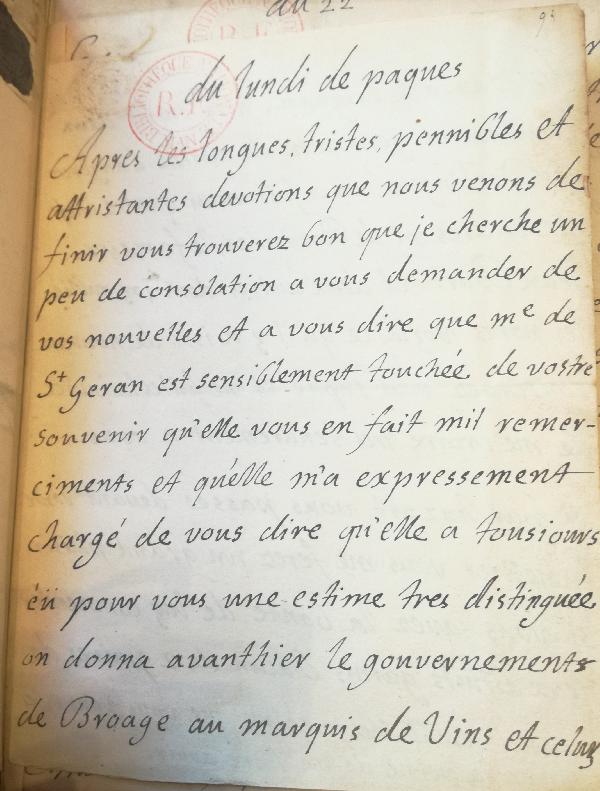 du 22
95
du lundi de paques
Apres les longues, tristes, pennibles et
attristantes devotions que nous venons de
finir vous trouverez bon que je cherche un
peu de consolation a vous demander de
vos nouvelles et a vous dire que me de
St Geran est sensiblement touchée de vostre
souvenir qu'elle vous en fait mil remer-
ciments et qu'elle m'a expressement
chargé de vous dire qu'elle a tousiours
éü pour vous une estime tres distinguée
on donna avanthier le gouvernements
de Broage au marquis de Vins et celuy
BIBLIOTHEQUE
R.F.